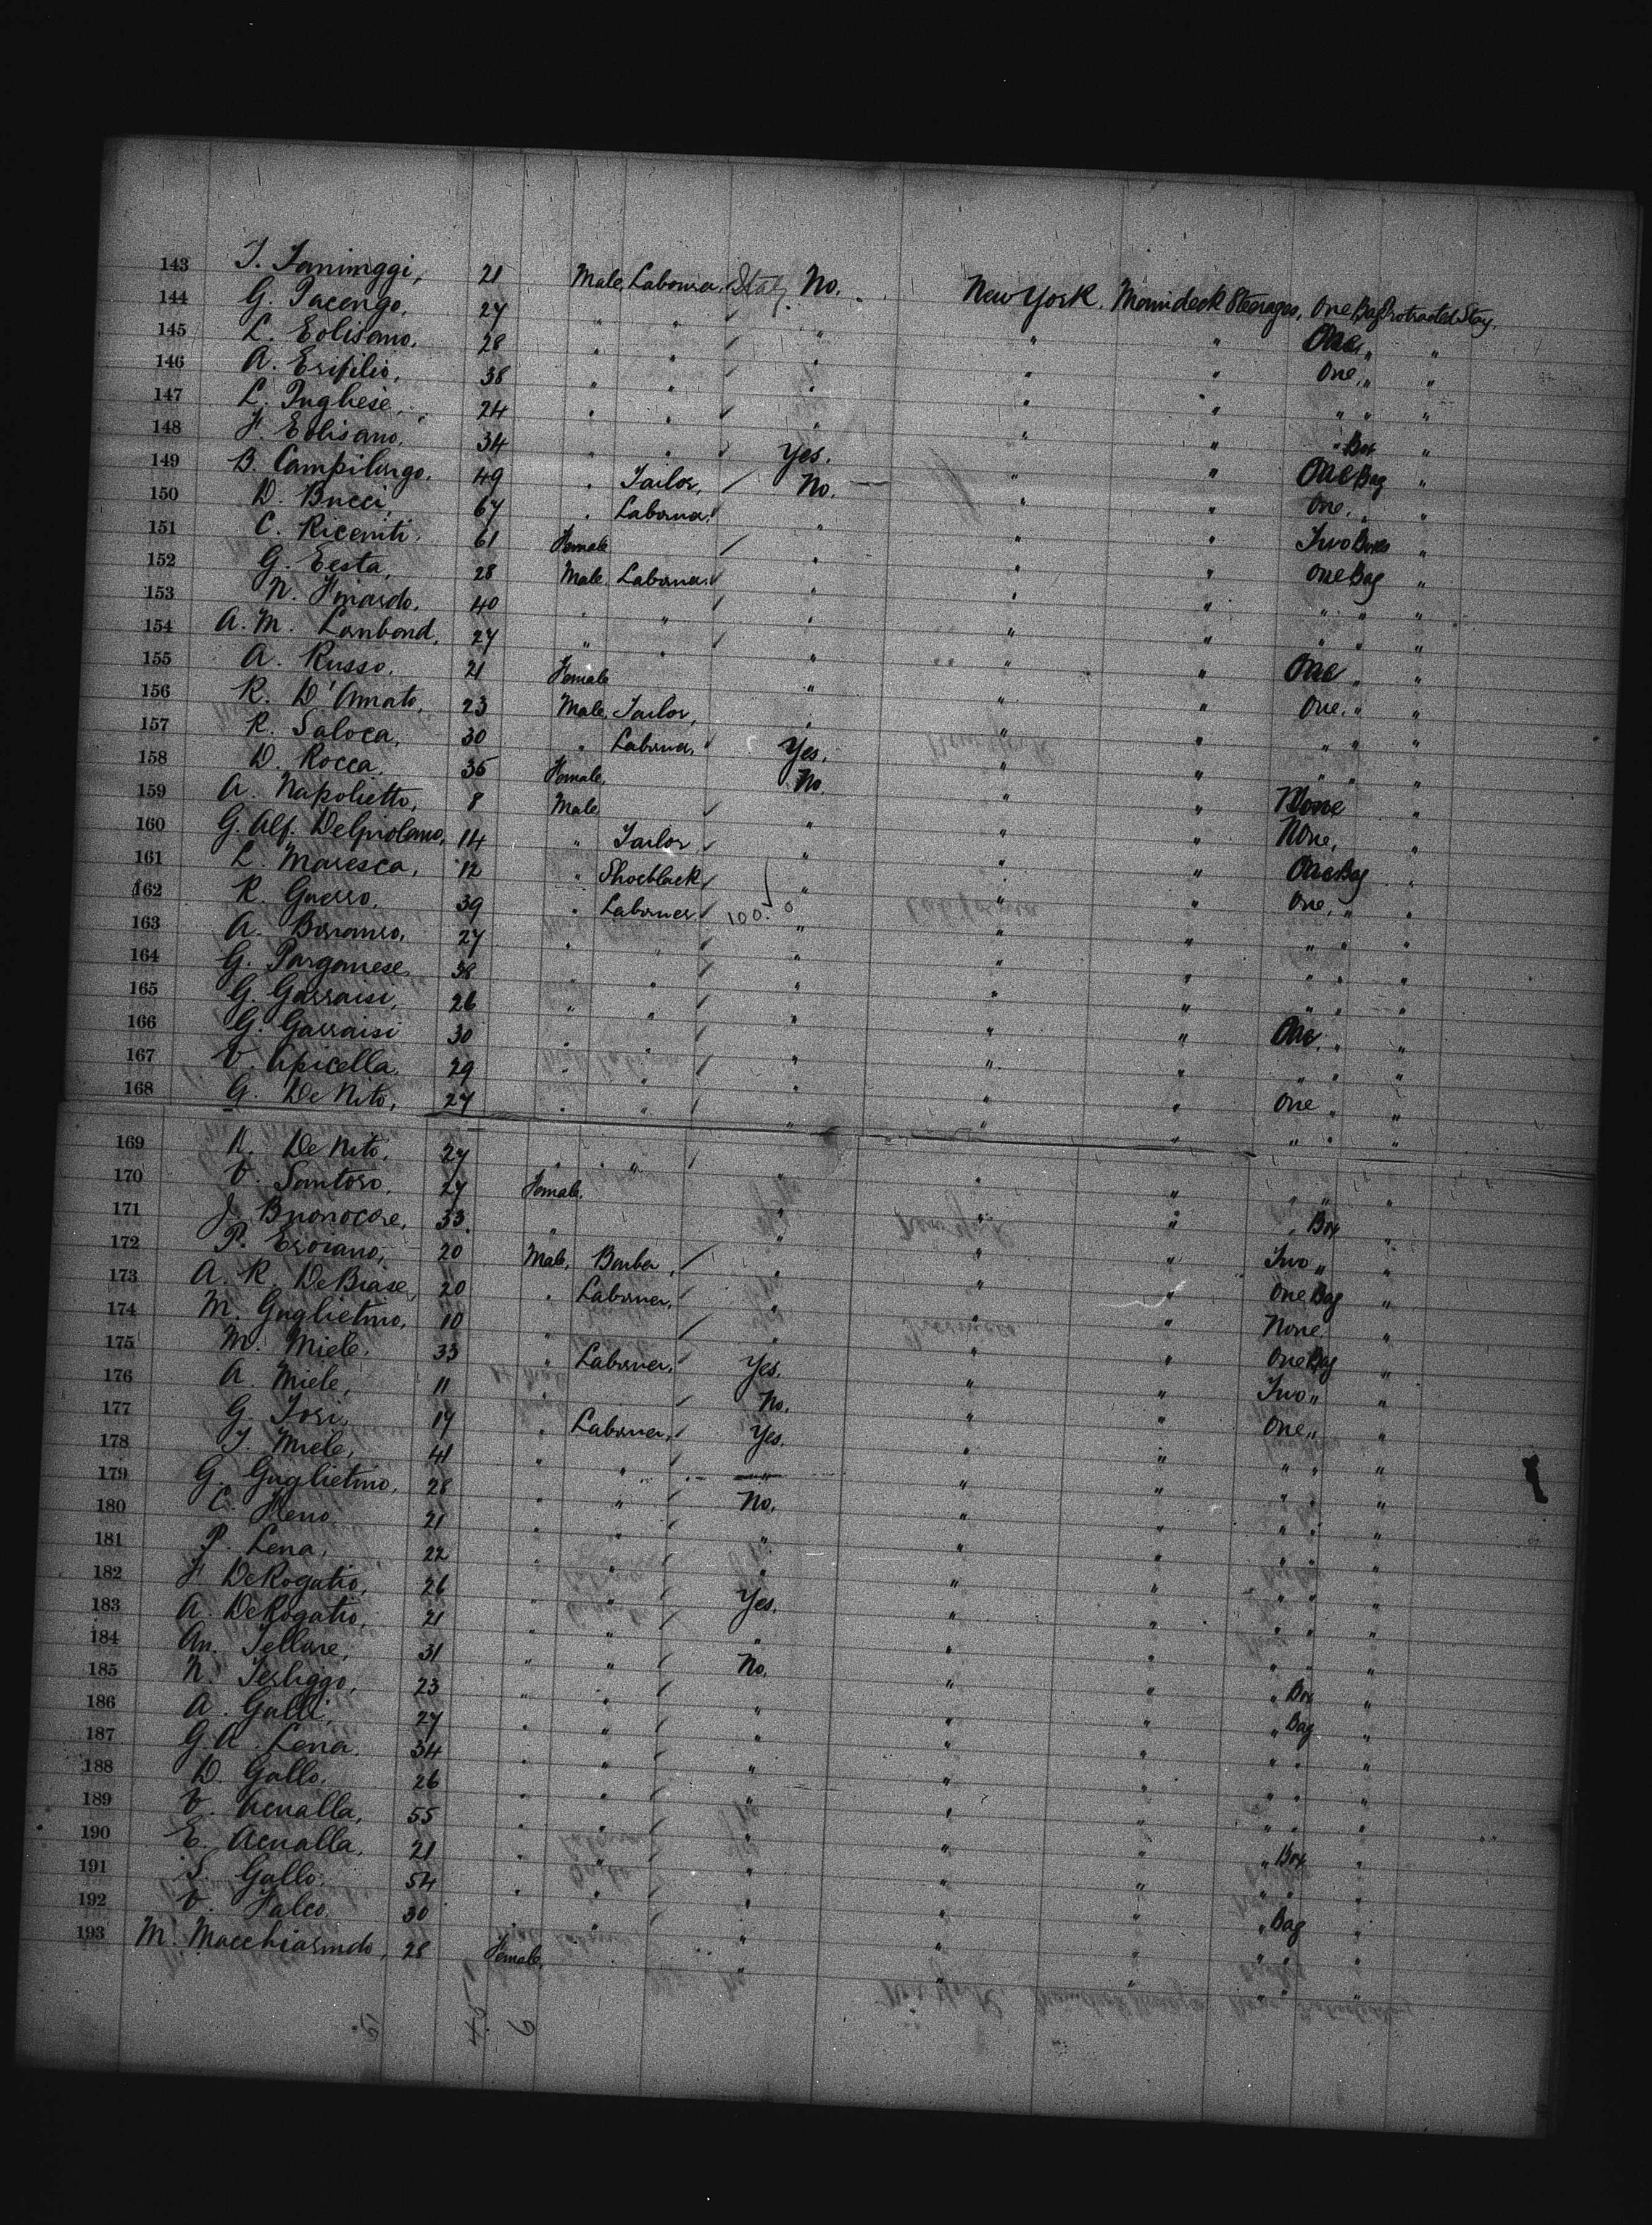 143 T. Tanimggi, 21 Male, Labourer, Italy No. New York. Maindeck Steerages, One Bag Protracted Stay.
144 G. Pacengo, 27 " " " " " One " "
145 L. Eolisano, 28 " " " " " One, " "
146 A. Ersilio, 38 " " " " " " " "
147 L. Inghese, 24 " " " " " " Box "
148 F. Eolisano, 34 " " Yes. " " One Bag "
149 B. Campilongo, 49 " Tailor, No. " " One, " "
150 D. Bucci, 67 " Labourer, " " " Two Boxes "
151 C. Riceniti, 61 Female " " " One Bag "
152 G. Eesta, 28 Male, Labourer, " " " " " "
153 N. Finardo, 40 " " " " " " " "
154 A. M. Lanbond, 27 " " " " " One " "
155 A. Russo, 21 Female " " " One, " "
156 R. D'Amato, 23 Male, Tailor, " " " " " "
157 R. Saloca, 30 " Labourer, Yes. " " " " "
158 D. Rocca, 35 Female, No. " " None "
159 A. Napolietto, 8 Male " " " None, "
160 G. Alf. Delpiolamo, 14 " Tailor " " " One Bag "
161 L. Maresca, 12 " Shoeblack " " " One, " "
162 R. Guerro, 39 " Labourer 100. " " " " " "
163 A. 27 " " " " " " " "
164 G. Parganese 38 " " " " " " " "
165 G. Garraisi, 26 " " " " " One, " "
166 G. Garraisi 30 " " " " " " " "
167 V. Apicella, 29 " " " " " One " "
168 G. De Nito, 27 " " " " " " " "
169 N. De Nito, 27 " " " " " " " "
170 V. Santoro, 27 Female, " " " " Box "
171 J. Buonocore, 33 " " " " Two " "
172 P. Eroiano, 20 Male, Barber, " " " One Bag "
173 A. R. De Biase, 20 " Labourer, " " " None "
174 M. Guglietmo, 10 " " " " One Bag "
175 M. Miele, 33 " Labourer, Yes. " " Two " "
176 A. Miele, 11 No. " " One " "
177 G. Iosi, 17 " Labourer, Yes. " " " " "
178 T. Miele, 41 " " " " " " " "
179 G. Guglietmo, 28 " " No. " " " " "
180 C. Heno 21 " " " " " " " "
181 P. Lena, 22 " " " " " " " "
182 F De Rogatio, 26 " " Yes. " " " " "
183 A. De Rogatio, 21 " " " " " " " "
184 An. Tellure, 31 " " No. " " " Box "
185 N. Tesliggo, 23 " " " " " " Bag "
186 A. Galli, 27 " " " " " " " "
187 G. A. Lena, 34 " " " " " " " "
188 D. Gallo, 26 " " " " " " " "
189 V. Acualla, 55 " " " " " " Box "
190 E. Acualla, 21 " " " " " " " "
191 S. Gallo, 54 " " " " " " Bag "
192 V. Falco, 30 " " " " " " " "
193 M. Macchiarmdo, 28 Female, " " " " " "